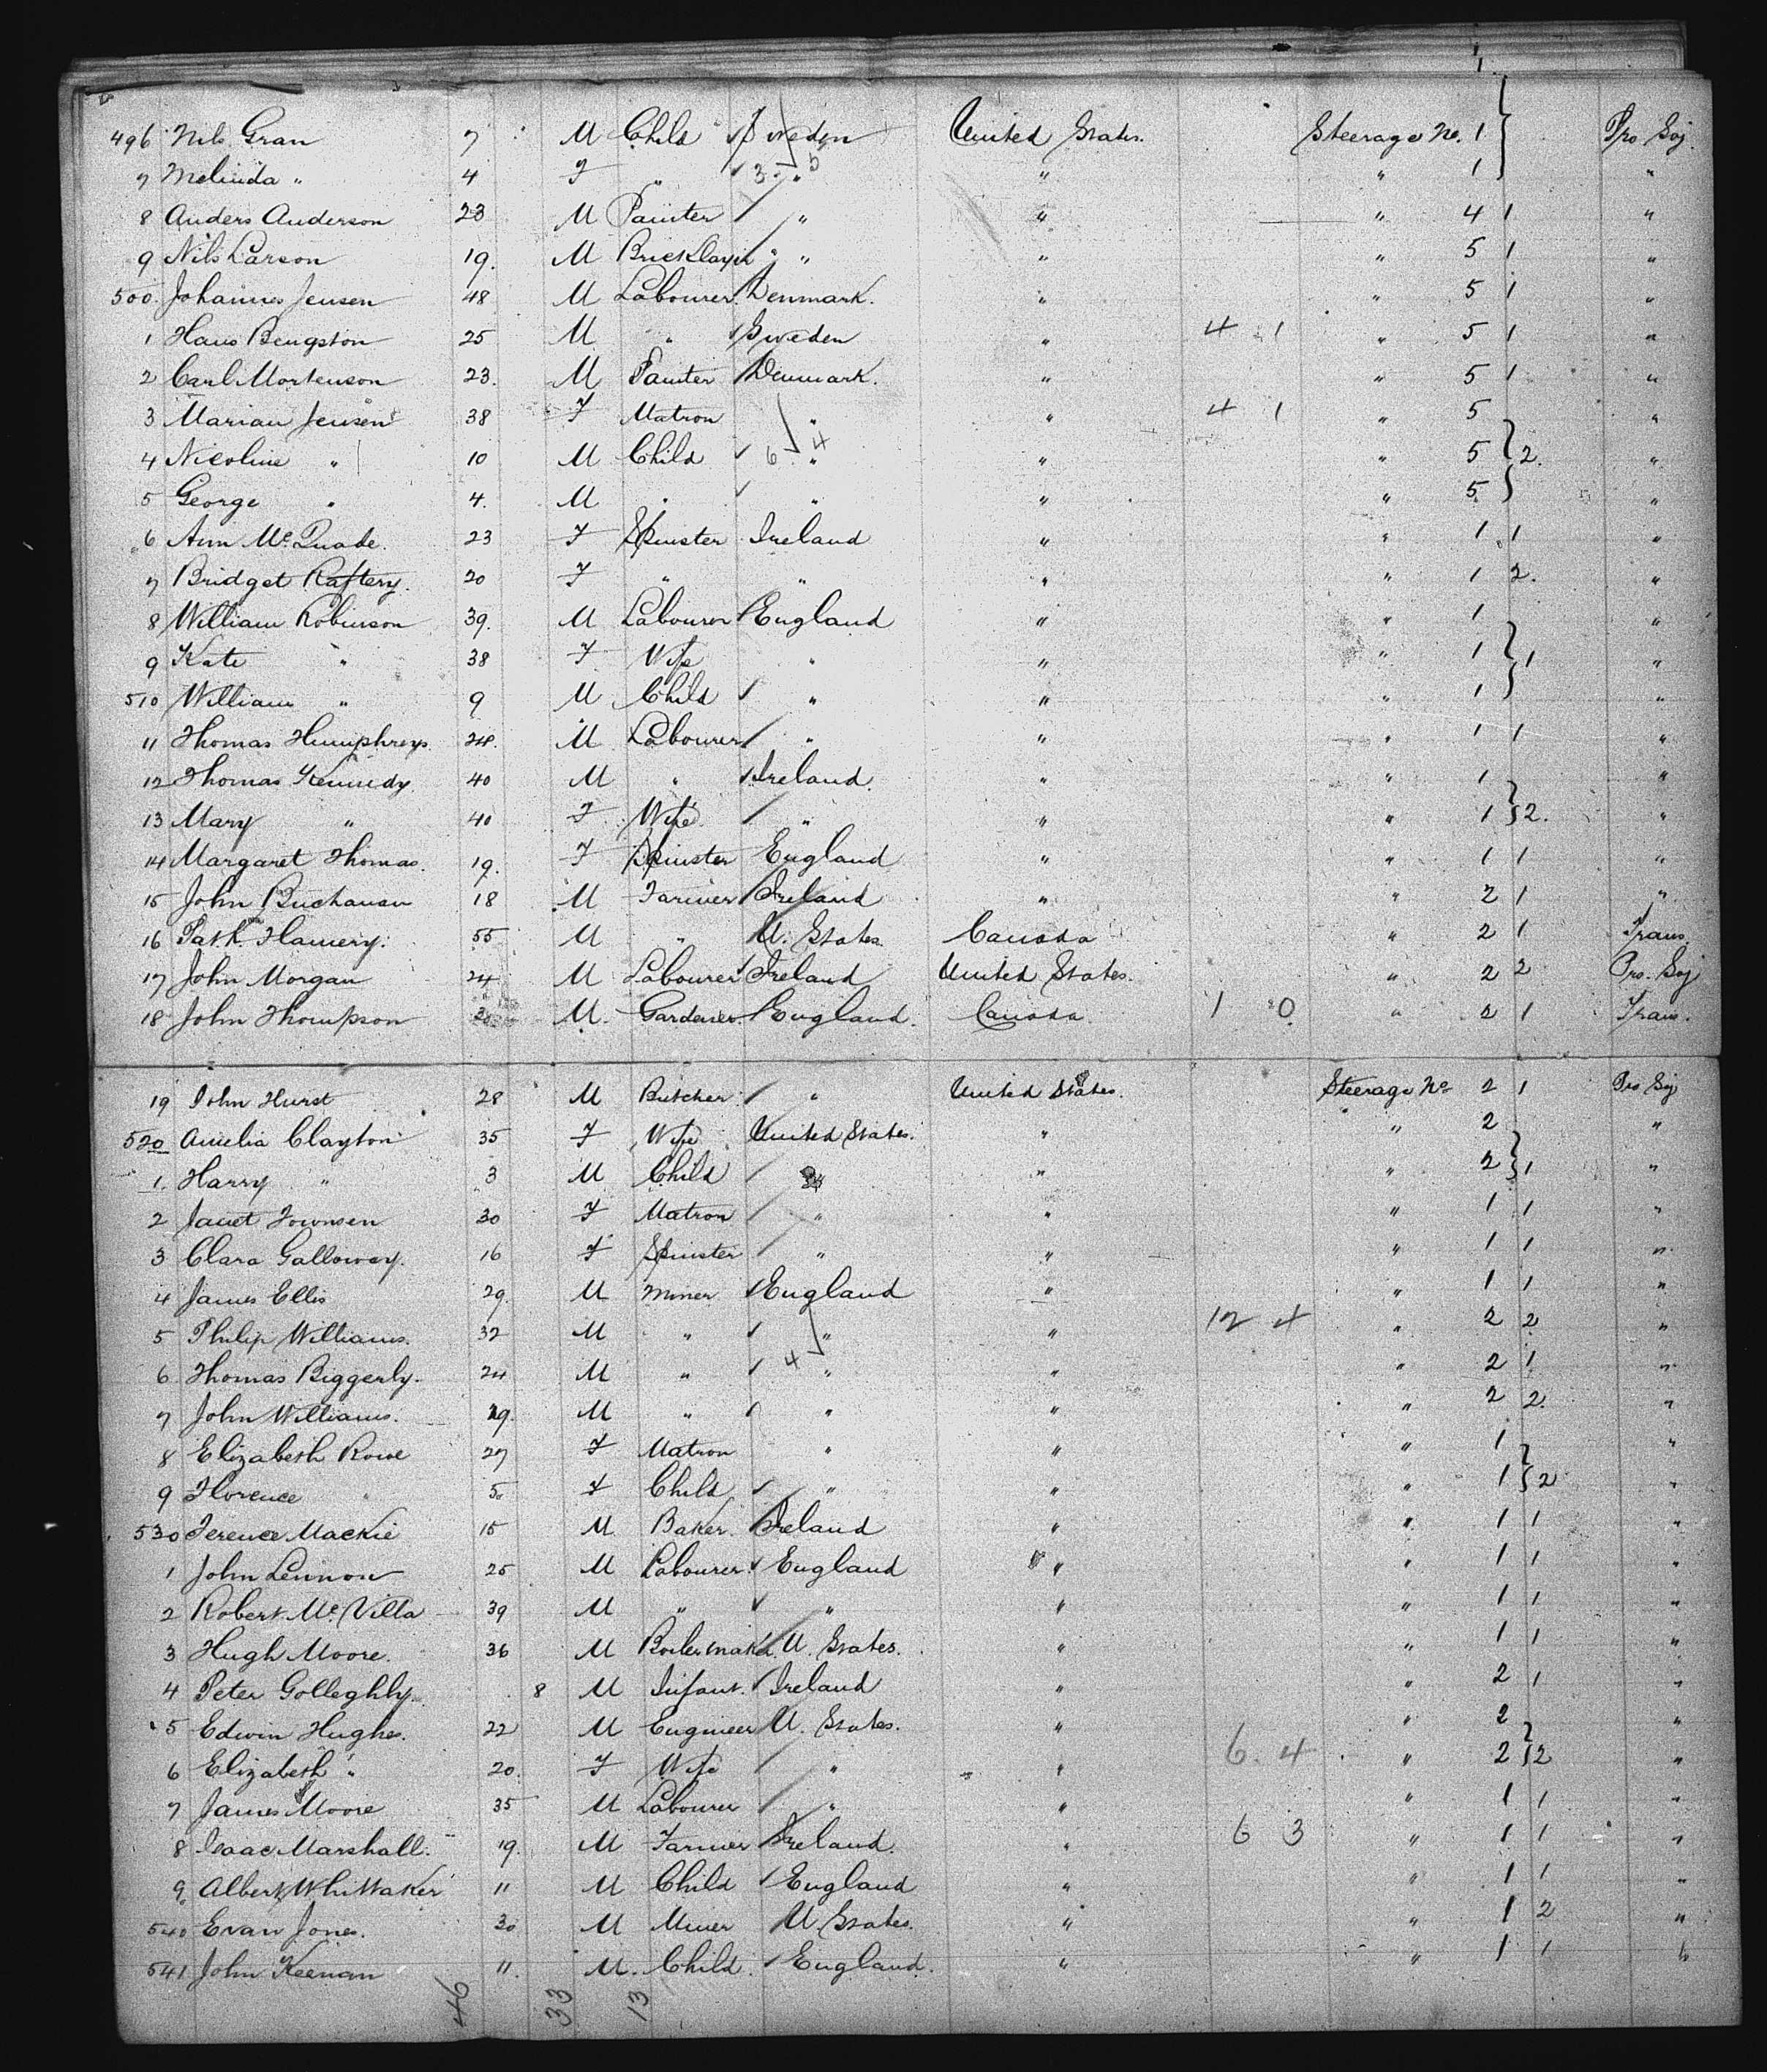 496 Nils Gran 7 M Child Sweden United States. Steerage No. 1 Pro Soj.
7 Melinda " 4 F " " " " 1 "
8 Anders Anderson 23 M Painter " " " 4 1 "
9 Nils Larson 19. M Bricklayer " " " 5 1 "
500. Johannes Jensen 48 M Labourer. Denmark. " " 5 1 "
1 Hans Bengston 25 M " Sweden " 4 1 " 5 1 "
2 Carl Mortenson 23. M Painter Denmark. " " 5 1 "
3 Marian Jensen 38 F Matron " " 4 1 " 5 "
4 Nicoline " 10 M Child 6 4 " " " 5 2. "
5 George " 4. M " " " " 5 "
6 Ann Mc Quade. 23 F Spinster Ireland " " 1 1 "
7 Bridget Raftery. 20 F " " " " 1 2. "
8 William Robinson 39. M Labourer England " " 1 "
9 Kate " 38 F Wife " " " 1 1 "
510 William " 9 M Child " " " 1 "
11 Thomas Humphreys 24. M Labourer " " " 1 1 "
12 Thomas Kennedy 40 M " Ireland. " " 1 "
13 Mary " 40 F Wife " " " 1 2. "
14 Margaret Thomas. 19. F Spinster England " " 1 1 "
15 John Buchanan 18 M Farmer Ireland " " 2 1 "
16 Patk. Flannery. 55 M " U. States. Canada " 2 1 Trans.
17 John Morgan 24 M Labourer Ireland United States. " 2 2 Pro. Soj
18 John Thompson M. Gardener. England. Canada 1 0 " 2 1 Trans.
19 John Hurst 28 M Butcher. " United States. Steerage No 2 1 Pro Soj
520 Amelia Clayton 35 F Wife United States. " " 2 "
1. Harry " 3 M Child " " 2 1 "
2 Janet Townsen 30 F Matron " " " 1 1 "
3 Clara Galloway. 16 F Spinster " " " 1 1 "
4 James Ellis 29. M Miner England " " 1 1 "
5 Philip Williams. 32 M " " " 12 4 " 2 2 "
6 Thomas Biggerly. 24 M " 4 " " " 2 1 "
7 John Williams. 29. M " " " " 2 2. "
8 Elizabeth Rowe 27 F Matron " " " 1 "
9 Florence " 5 F Child " " " 1 2 "
530 Terence Mackie 15 M Baker. Ireland " " 1 1 "
1 John Lennon 25 M Labourer. England " " 1 1 "
2 Robert Mc Villa 39 M " " " " 1 1 "
3 Hugh Moore. 36 M Boilermaker. U. States. " " 1 1 "
4 Peter Golleghly. 8 M Infant. Ireland " " 2 1 "
5 Edwin Hughes. 22 M Engineer U. States. " " 2 "
6 Elizabeth " 20. F Wife " " 6. 4 " 2 2 "
7 James Moore 35 M Labourer " " " 1 1 "
8 Isaac Marshall. 19. M Farmer Ireland. " 6 3 " 1 1 "
9 Albert Whittaker 11 M Child England " " 1 1 "
540 Evan Jones. 30 M Miner U States. " " 1 2 "
541 John Keenan 11. M. Child. England. " " 1 1 "
46 33 13